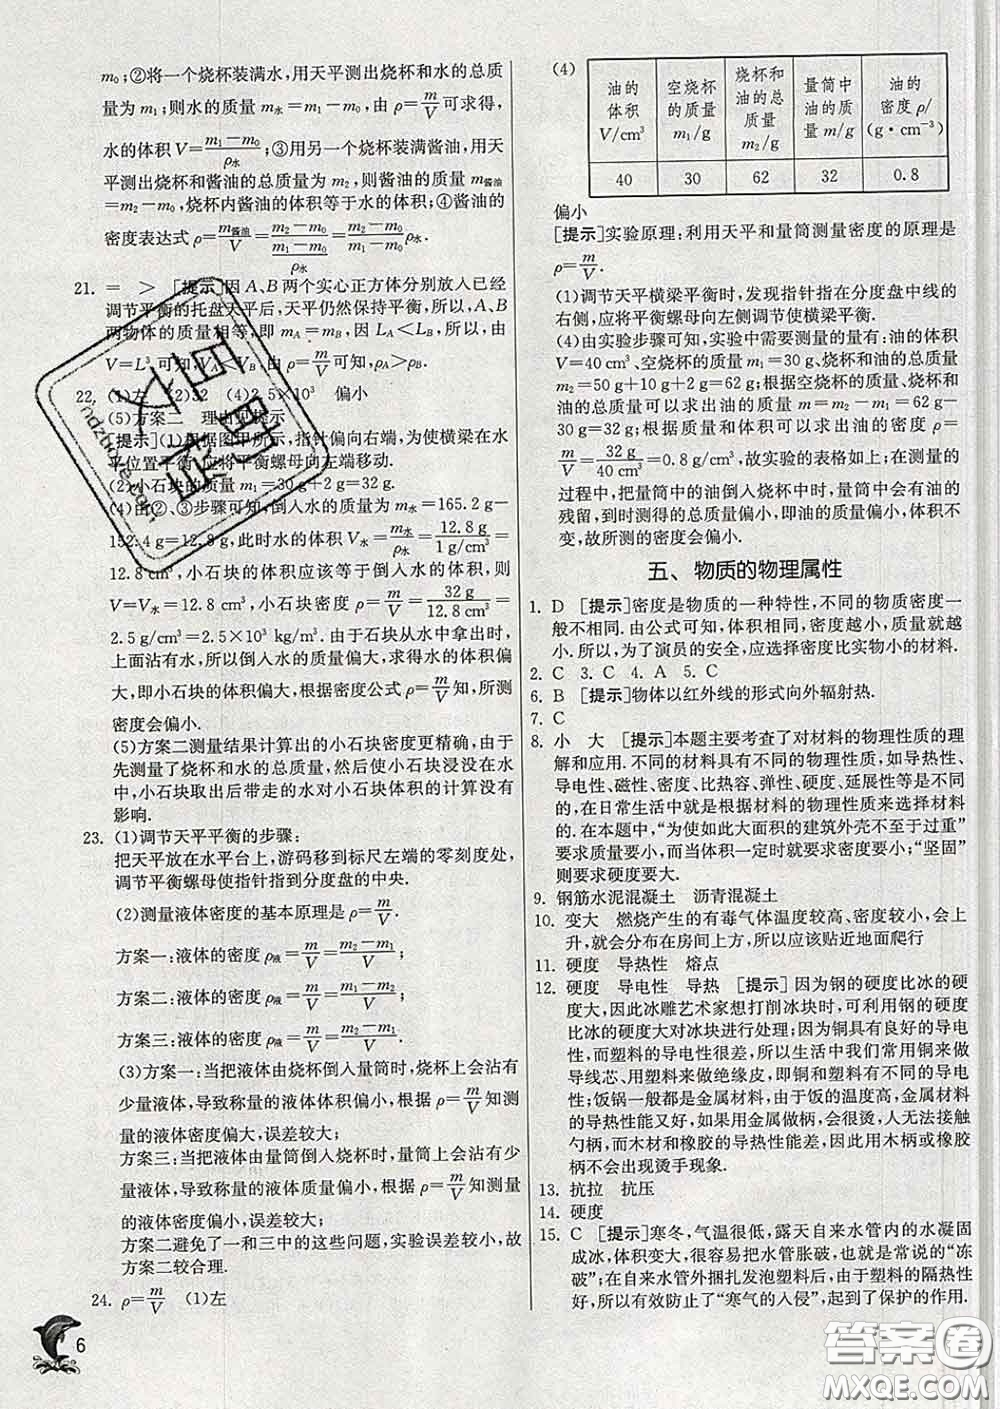 m₀;②将一个烧杯装满水,用天平测出烧杯和水的总质
量为 m₁;则水的质量 m水=m₁-m₀,由 ρ=m/V 可求得,
水的体积 V=(m₁-m₀)/ρ水;③用另一个烧杯装满酱油,用天
平测出烧杯和酱油的总质量为 m₂,则酱油的质量 m酱油
=m₂-m₀,烧杯内酱油的体积等于水的体积;④酱油的
密度表达式 ρ=m酱油/V=(m₂-m₀)/((m₁-m₀)/ρ水)=(m₂-m₀)/(m₁-m₀)ρ水.
21. = > [提示]因 A、B 两个实心正方体分别放入已经
调节平衡的托盘天平后,天平仍然保持平衡,所以,A、B
两物体的质量相等,即 mA=mB,因 LA<LB,所以,由
V=L³可知,VA<VB.由 ρ=m/V 可知,ρA>ρB.
22. (1)左 (2)32 (4)2.5×10³ 偏小
(5)方案二 理由见提示
[提示](1)根据图甲所示,指针偏向右端,为使横梁在水
平位置平衡,应将平衡螺母向左端移动.
(2)小石块的质量 m₁=30 g+2 g=32 g.
(4)由②、③步骤可知,倒入水的质量为 m水=165.2 g-
152.4 g=12.8 g,此时水的体积 V水=m水/ρ水=12.8 g/(1 g/cm³)=
12.8 cm³,小石块的体积应该等于倒入水的体积,则
V=V水=12.8 cm³,小石块的密度 ρ=m/V=32 g/12.8 cm³=
2.5 g/cm³=2.5×10³ kg/m³.由于石块从水中拿出时,
上面沾有水,所以倒入水的质量偏大,求得水的体积偏
大,即小石块的体积偏大,根据密度公式 ρ=m/V知,所测
密度会偏小.
(5)方案二测量结果计算出的小石块密度更精确,由于
先测量了烧杯和水的总质量,然后使小石块浸没在水中
,小石块取出后带走的水对小石块体积的计算没有
影响.
23. (1)调节天平平衡的步骤:
把天平放在水平台上,游码移到标尺左端的零刻度处,
调节平衡螺母使指针指到分度盘的中央.
(2)测量液体密度的基本原理是 ρ=m/V.
方案一:液体的密度 ρ液=m/V=(m₂-m₁)/V;
方案二:液体的密度 ρ液=m/V=(m₁-m₂)/V;
方案三:液体的密度 ρ液=m/V=(m₂-m₁)/V.
(3)方案一:当把液体由烧杯倒入量筒时,烧杯上会沾有
少量液体,导致称量的液体体积偏小,根据 ρ=m/V知测
量的液体密度偏大,误差较大;
方案三:当把液体由量筒倒入烧杯时,量筒上会沾有少
量液体,导致称量的液体质量偏小,根据 ρ=m/V知测量
的液体密度偏小,误差较大;
方案二避免了一和三中的这些问题,实验误差较小,故
方案二较合理.
24. ρ=m/V (1)左
6
(4)
油的体积 V/cm³ 空烧杯的质量 m₁/g 烧杯和油的总质量 m₂/g 量筒中油的质量 m/g 油的密度 ρ/(g·cm⁻³)
40 30 62 32 0.8
偏小
[提示]实验原理:利用天平和量筒测量密度的原理是
ρ=m/V.
(1)调节天平横梁平衡时,发现指针指在分度盘中线的
右侧,应将平衡螺母向左侧调节使横梁平衡.
(4)由实验步骤可知,实验中需要测量的量有:油的体积
V=40 cm³、空烧杯的质量 m₁=30 g、烧杯和油的总质量
m₂=50 g+10 g+2 g=62 g;根据空烧杯的质量、烧杯和
油的总质量可以求出油的质量 m=m₂-m₁=62 g-
30 g=32 g;根据质量和体积可以求出油的密度 ρ
=m/V=32 g/40 cm³=0.8 g/cm³,故实验的表格如上;在测量的
过程中,把量筒中的油倒入烧杯中时,量筒中会有油的
残留,到时测得的总质量偏小,即油的质量偏小,体积不
变,故所测的密度会偏小.
五、物质的物理属性
1. D [提示]密度是物质的一种特性,不同的物质密度一
般不相同.由公式可知,体积相同,密度越小,质量就越
小.所以,为了演员的安全,应选择密度比实物小的材料.
2. C 3. C 4. A 5. C
6. B [提示]物体以红外线的形式向外辐射热.
7. C
8. 小 大 [提示]本题主要考查了对材料的物理性质的理
解和应用.不同的材料具有不同的物理性质,如导热性、
导电性、磁性、密度、比热容、弹性、硬度、延展性等是不同
的,在日常生活中就是根据材料的物理性质来选择材料
的.在本题中,“为使如此大面积的建筑外壳不至于过重”
要求质量要小,而当体积一定时就要求密度要小;“坚固”
则要求硬度要大.
9. 钢筋水泥混凝土 沥青混凝土
10. 变大 燃烧产生的有毒气体温度较高、密度较小,会上
升,就会分布在房间上方,所以应该贴近地面爬行
11. 硬度 导热性 熔点
12. 硬度 导电性 导热 [提示]因为钢的硬度比冰的硬
度大,因此冰雕艺术家想打削冰块时,可利用钢的硬度
比冰的硬度大对冰块进行处理;因为铜具有良好的导电
性,而塑料的导电性很差,所以生活中我们常用铜来做
导线芯、用塑料来做绝缘皮,即铜和塑料有不同的导电
性;饭锅一般都是金属材料,由于饭的温度高,金属材料
的导热性能又好,如果用金属做柄,会很烫,人无法接触
勺柄,而木材和橡胶的导热性能差,因此用木柄或橡胶
柄不会出现烫手现象.
13. 抗拉 抗压
14. 硬度
15. C [提示]寒冬,气温很低,露天自来水管内的水凝固
成冰,体积变大,很容易把水管胀破,也就是常说的“冻
破”;在自来水管外捆扎发泡塑料后,由于塑料的隔热性
好,所以有效防止了“寒气的入侵”,起到了保护的作用.
答案圈
MXQE.COM